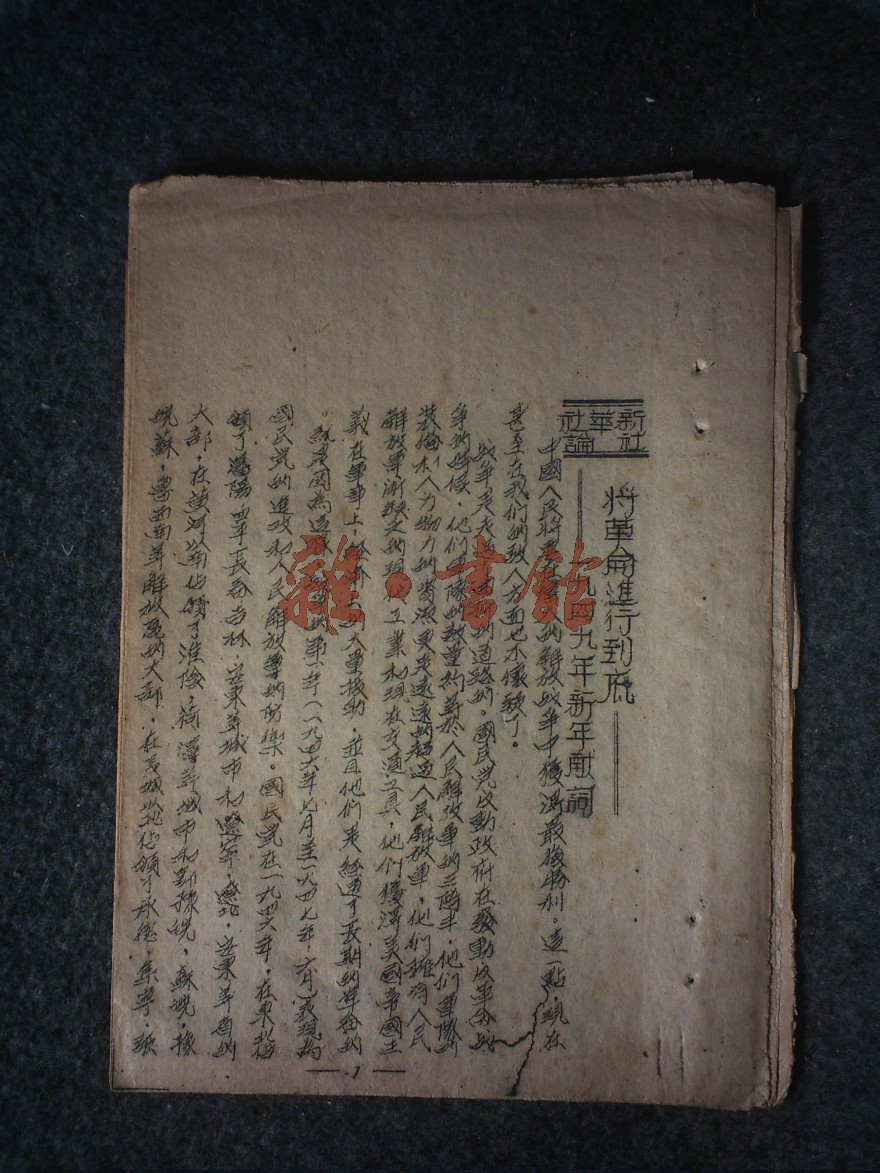 新華社
社論
将革命進行到底
一九四九年新年献詞
中國人民將要在的解放战争中獲得最後勝利。這一點，現在
甚至在我們的敌人方面也不懷疑了。
战争走的道路的。國民党反動政府在發動反革命战
争的時候，他們軍隊的數量約等於人民解放軍的三倍半，他們軍隊的
装俻和人力物力的資源更是遠遠的超过人民解放軍，他們擁有人民
解放軍所缺乏的現代工業和現在交通工具，他們獲得美國帝國主
義在軍事上、經济上的大量援助，並且他們是經过了長期的準俻的
。就是因為這樣，战争的第一年（一九四六年七月至一九四七年六月）表現為
國民党的進攻和人民解放軍的防禦。國民党在一九四六年，在東北佔
領了瀋陽四平長春吉林、安東等城市和遼寧，遼北，安東等省的
大部，在黄河以南佔領了淮陰，菏澤等城市和鄂豫皖，蘇皖，豫
皖蘇，魯西南等解放區的大部，在長城以北佔領了承德，集寧，張
1
雜·書館